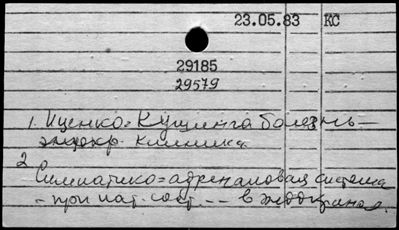 23.05.83 КС
29185
29579
1. Иценко-Кушинга болезнь –
эндокр. клиника
2
Симпатико=адреналовая система
– при пат. сост. -- в